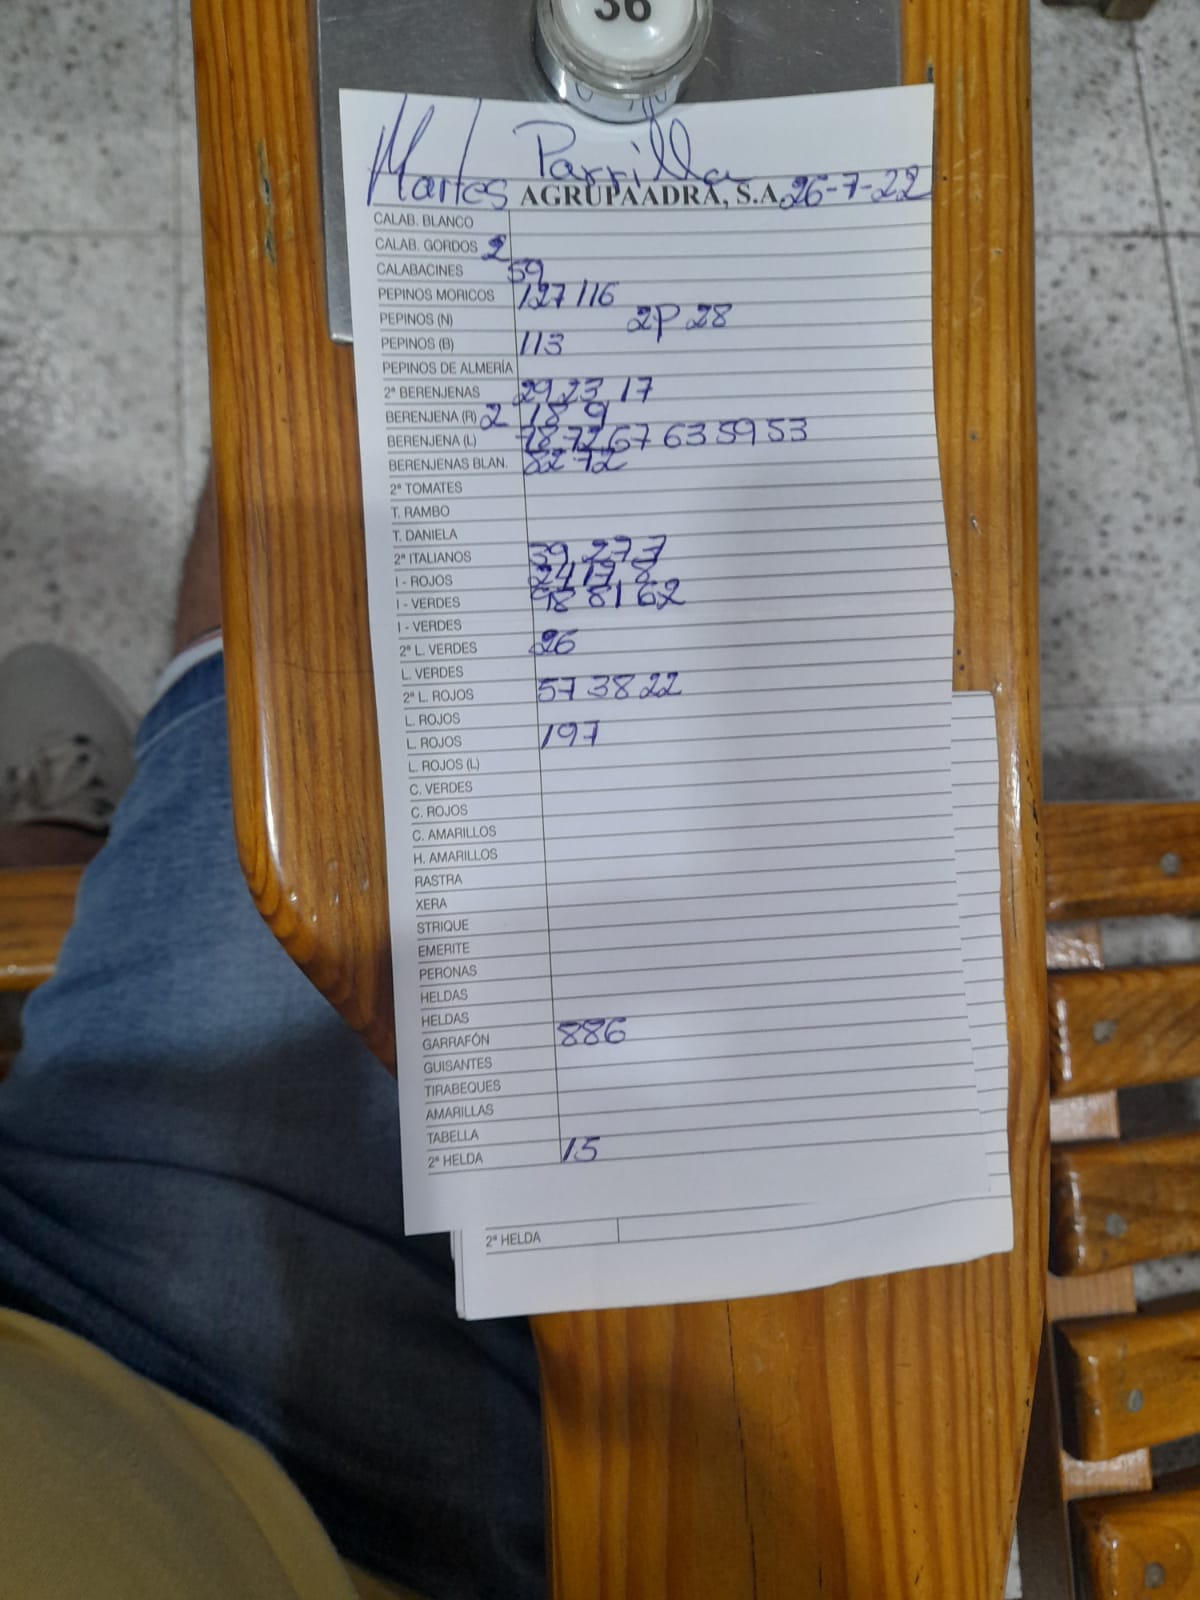 36
Parrilla
Martes AGRUPAADRA, S.A. 26-7-22
CALAB. BLANCO
CALAB. GORDOS 2
CALABACINES 59
PEPINOS MORICOS 127 116
PEPINOS (N) 2P 28
PEPINOS (B) 113
PEPINOS DE ALMERÍA
2ª BERENJENAS 29 23 17
BERENJENA (R) 2 18 9
BERENJENA (L) 78 72 67 63 59 53
BERENJENAS BLAN. 82 72
2ª TOMATES
T. RAMBO
T. DANIELA
2ª ITALIANOS 39 27 7
I - ROJOS 24 17 8
I - VERDES 98 81 62
I - VERDES
2ª L. VERDES 26
L. VERDES
2ª L. ROJOS 57 38 22
L. ROJOS
L. ROJOS 197
L. ROJOS (L)
C. VERDES
C. ROJOS
C. AMARILLOS
H. AMARILLOS
RASTRA
XERA
STRIQUE
EMERITE
PERONAS
HELDAS
HELDAS
GARRAFÓN 886
GUISANTES
TIRABEQUES
AMARILLAS
TABELLA
2ª HELDA 15
2ª HELDA